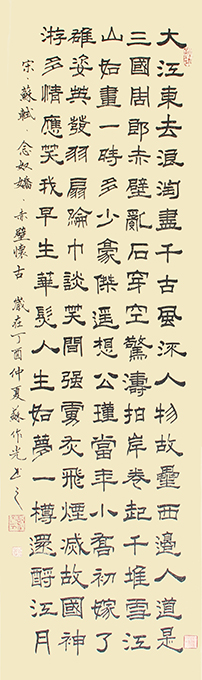 大江東去浪淘盡千古風流人物故壘西邊人道是
三國周郎赤壁亂石穿空驚濤拍岸卷起千堆雪江
山如畫一時多少豪傑遙想公瑾當年小喬初嫁了
雄姿英發羽扇綸巾談笑間強虜灰飛煙滅故國神
游多情應笑我早生華髮人生如夢一樽還酹江月
宋·蘇軾·念奴嬌·赤壁懷古 歲在丁酉仲夏蘇作光書之